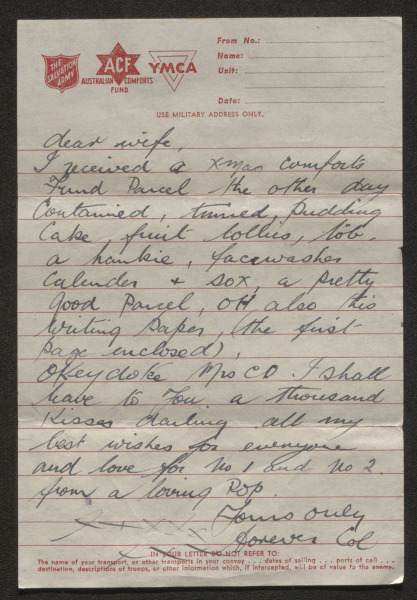 THE SALVATION ARMY
ACF
AUSTRALIAN COMFORTS FUND
YMCA
From No.:
Name:
Unit:
Date:
USE MILITARY ADDRESS ONLY.
dear wife,
I received a xmas comforts
Fund Parcel the other day
Contained, tinned, Pudding
Cake, fruit lollies, tob.
a hankie, facewasher
Calender + sox, a pretty
good Parcel, OH also this
writing Paper, (the first
page enclosed),
Okeydoke Mrs CD. I shall
leave to You a thousand
Kisses darling all my
best wishes for everyone
and love for No 1 and No 2.
from a loving Pop.
Yours only
forever Col
x x x x
IN YOUR LETTER DO NOT REFER TO:
The name of your transport, or other transports in your convoy . . . dates of sailing . . . ports of call . . .
destination, descriptions of troops, or other information which, if intercepted, will be of value to the enemy.